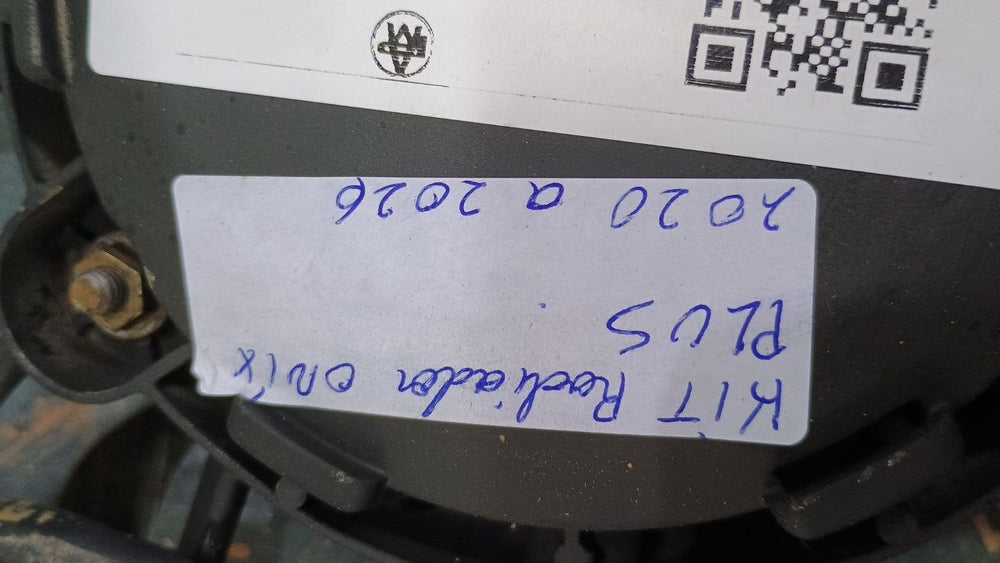 KIT Radiador onix
PLUS
2020 a 2026